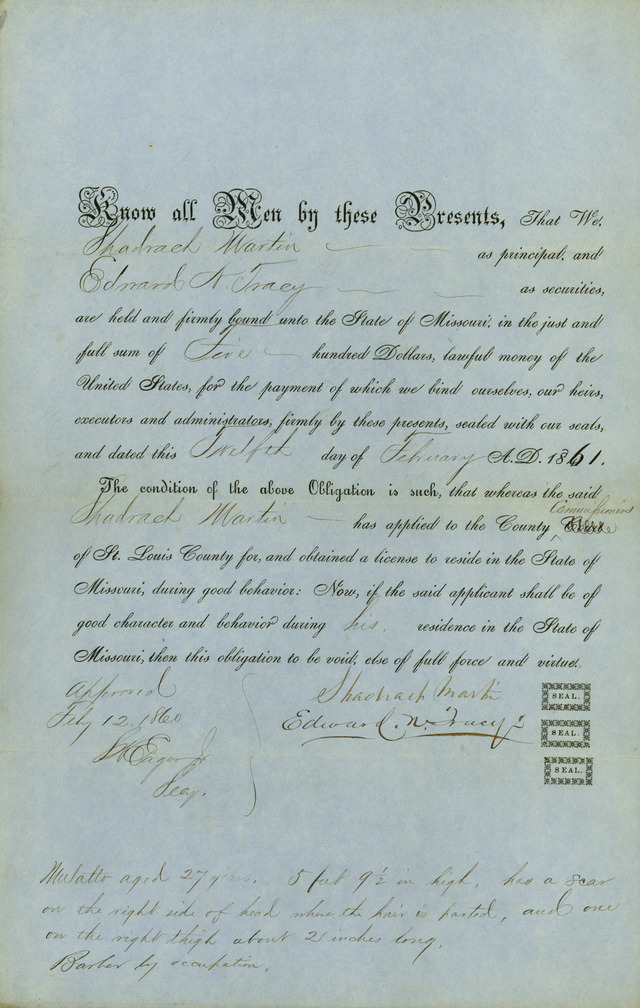 Know all Men by these Presents, That We,
Shadrach Martin as principal, and
Edward N. Tracy as securities,
are held and firmly bound unto the State of Missouri, in the just and
full sum of Five hundred Dollars, lawful money of the
United States, for the payment of which we bind ourselves, our heirs,
executors and administrators, firmly by these presents, sealed with our seals,
and dated this Twelfth day of February A.D. 1861.
The condition of the above Obligation is such, that whereas the said
Commissioners
Shadrach Martin has applied to the County Clerk
of St. Louis County for, and obtained a license to reside in the State of
Missouri, during good behavior: Now, if the said applicant shall be of
good character and behavior during his residence in the State of
Missouri, then this obligation to be void, else of full force and virtue.
Approved
Shadrach Martin SEAL.
Feby 12. 1860
Edward N. Tracy SEAL.
Eagar Jr
SEAL.
Mulatto aged 27 years, 5 feet 9½ in high, has a scar
on the right side of head where the hair is parted, and one
on the right thigh about 2 inches long.
Barber by occupation.